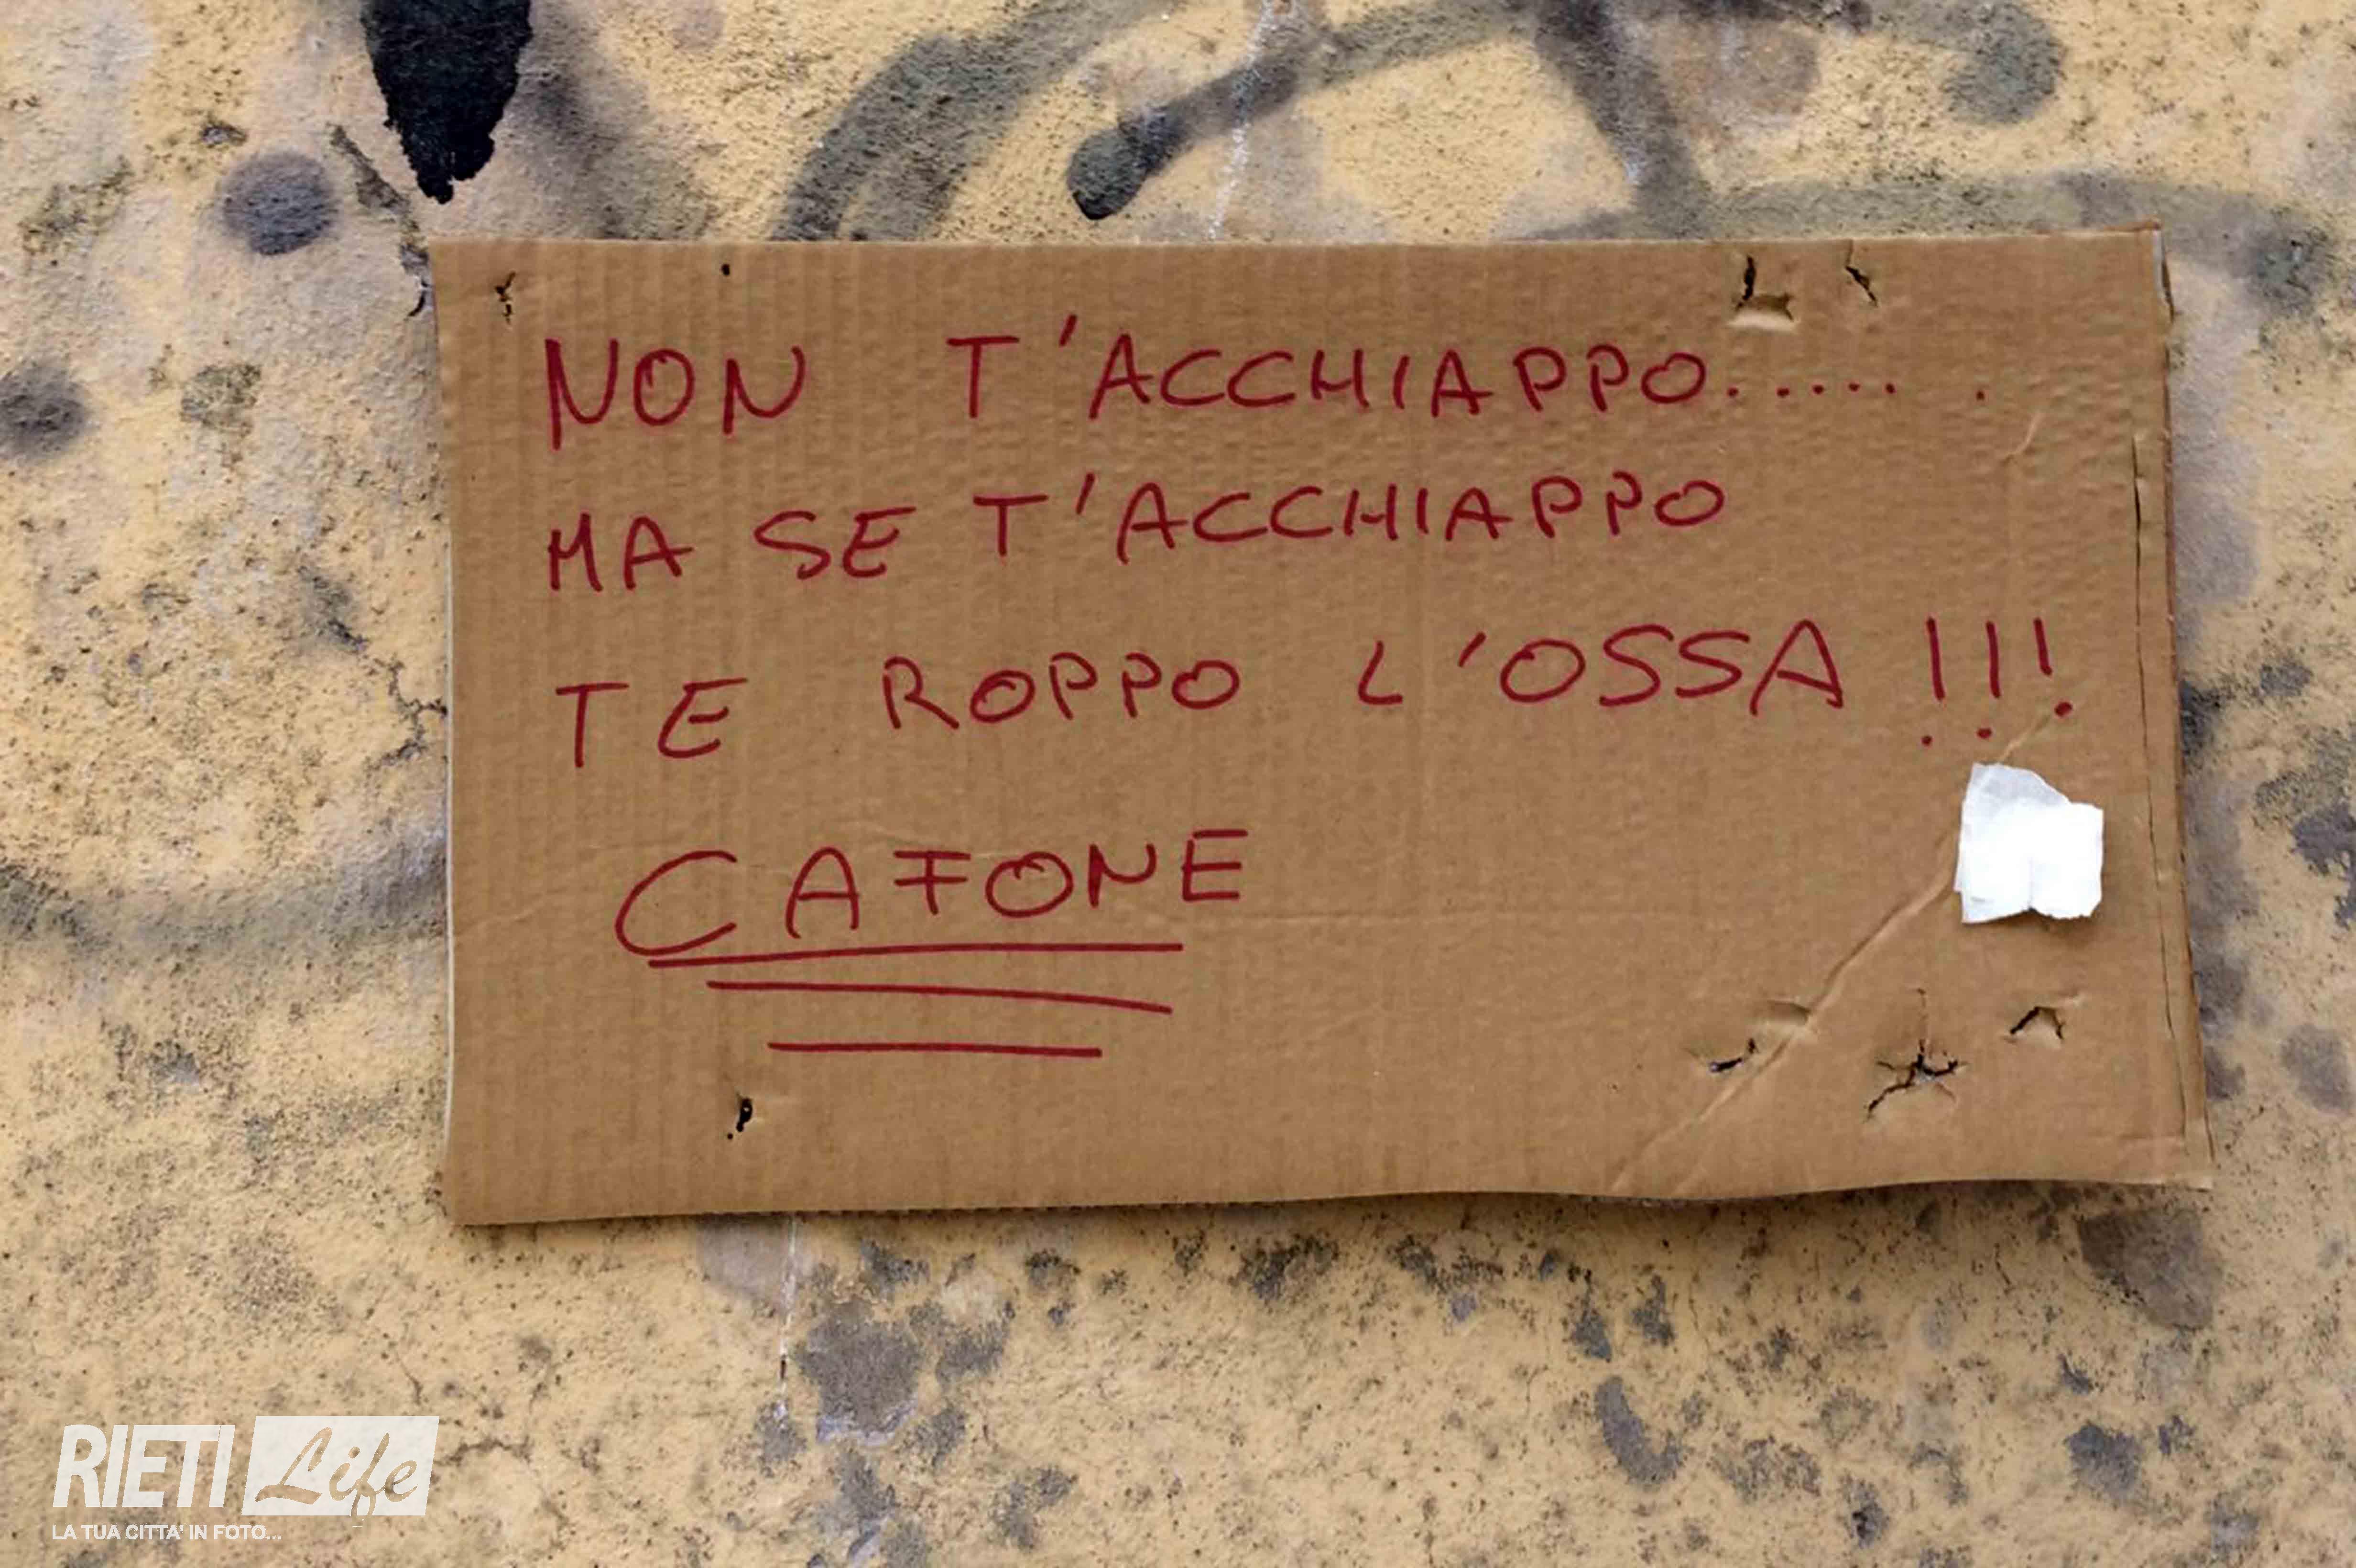 NON T'ACCHIAPPO..... .
MA SE T'ACCHIAPPO
TE ROPPO L'OSSA !!!
CAFONE
RIETI Life
LA TUA CITTA' IN FOTO...